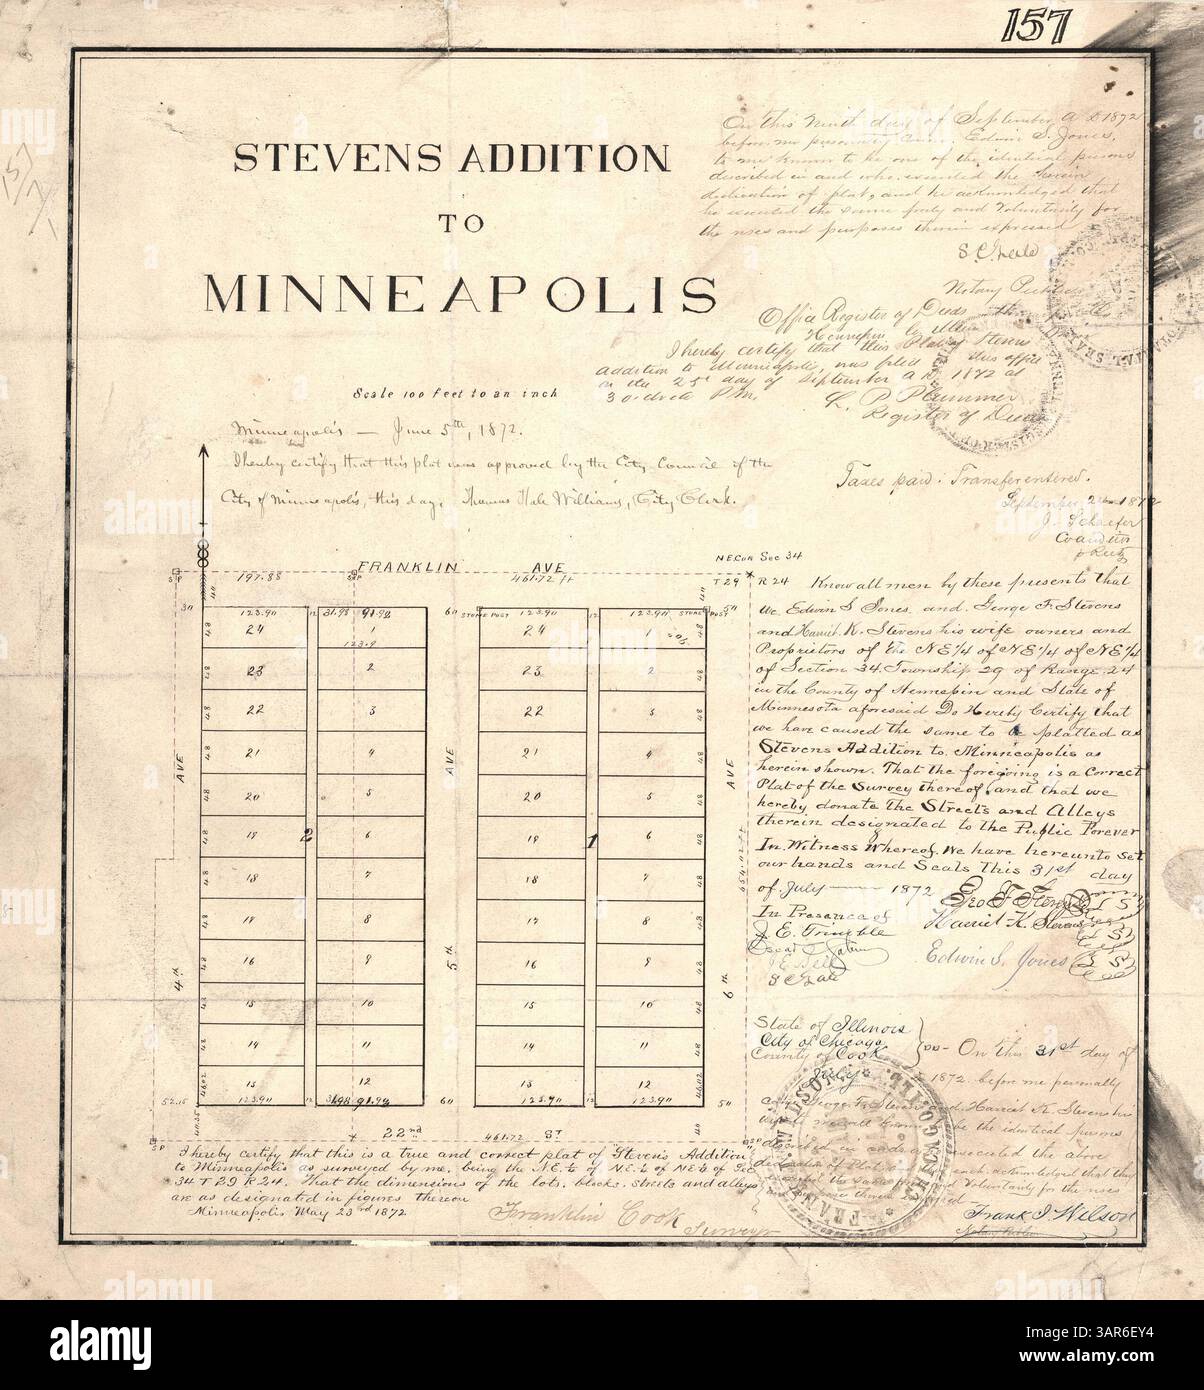 157
STEVENS ADDITION
TO
MINNEAPOLIS
Scale 100 feet to an inch
On this Ninth day of September A D 1872
before me personally came Edwin S. Jones,
to me known to be one of the identical persons
described in and who executed the herein
dedication of plat, and he acknowledged that
he executed the same freely and voluntarily for
the uses and purposes therein expressed
Notary Public
Office Register of Deeds
Hennepin Co
I hereby certify that this Plat of Stevens
addition to Minneapolis, was filed in this office
on the 25th day of September A D. 1872 at
3 o'clock P.M.
L. P. Plummer
Register of Deeds
Minneapolis — June 5th, 1872.
I hereby certify that this plat was approved by the City Council of the
City of Minneapolis, this day. Thomas Hale Williams, City Clerk.
Taxes paid. Transfer entered.
September 1872
J. Schaefer
Co auditor
N E Cor Sec 34
T 29 R 24
FRANKLIN AVE
197.88
461.72 ft
S P
123.9 12 31.98 91.92 60 STONE POST 123.9 12 123.9 STONE POST
24 1 24 1
123.9
23 2 23 2
22 3 22 3
21 4 21 4
20 5 20 5
19 2 6 19 1 6
18 7 18 7
17 8 17 8
16 9 16 9
15 10 15 10
14 11 14 11
13 12 13 12
123.9 12 31.98 91.92 60 123.9 12 123.9
4th AVE
5th AVE
6th AVE
52.15
22nd ST
461.72
SP
Know all men by these presents that
we Edwin S Jones and George F. Stevens
and Harriet K. Stevens his wife owners and
Proprietors of the N E 1/4 of N E 1/4 of N E 1/4
of Section 34. Township 29 of Range 24
in the County of Hennepin and State of
Minnesota aforesaid Do Hereby Certify that
we have caused the same to be platted as
Stevens Addition to Minneapolis as
herein shown. That the foregoing is a Correct
Plat of the Survey thereof, and that we
hereby donate the Streets and Alleys
therein designated to the Public Forever
In Witness Whereof, We have hereunto set
our hands and Seals This 31st day
of July — 1872
Geo F Stevens
Harriet K. Stevens
Edwin S. Jones
In Presence of
J. E. Trimble
State of Illinois
City of Chicago
County of Cook
On this 31st day of
July 1872 before me personally
came George F. Stevens and Harriet K. Stevens his
Frank J. Wilson
I hereby certify that this is a true and correct plat of "Steven's Addition"
to Minneapolis as surveyed by me, being the N.E. 1/4 of N.E. 1/4 of N.E 1/4 of Sec
34 T 29 R 24. That the dimensions of the lots, blocks, streets and alleys
are as designated in figures thereon
Minneapolis May 23rd 1872
Franklin Cook
Surveyor
alamy
Image ID: 3AR6EY4
www.alamy.com